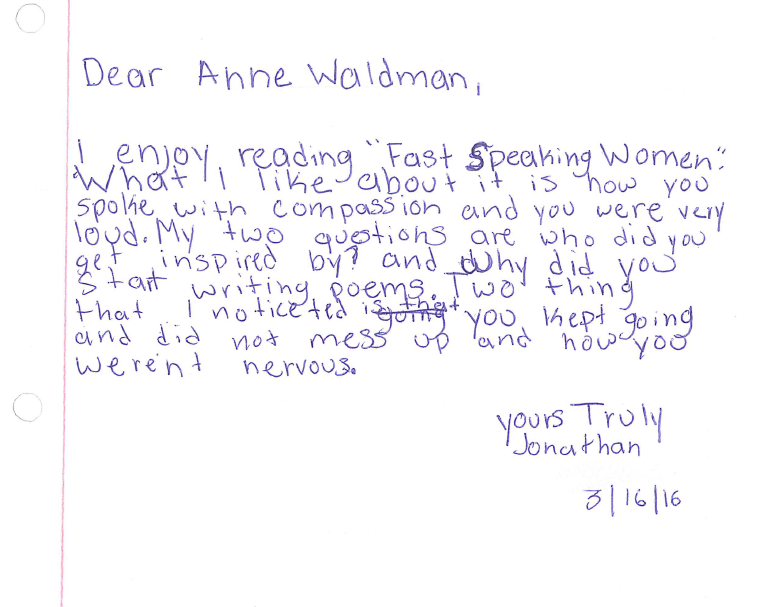 Dear Anne Waldman,
I enjoy reading "Fast Speaking Women."
What I like about it is how you
spoke with compassion and you were very
loud. My two questions are who did you
get inspired by? and Why did you
start writing poems. Two thing
that I noticeted is that you kept going
and did not mess up and how you
weren't nervous.
yours Truly
Jonathan
3/16/16